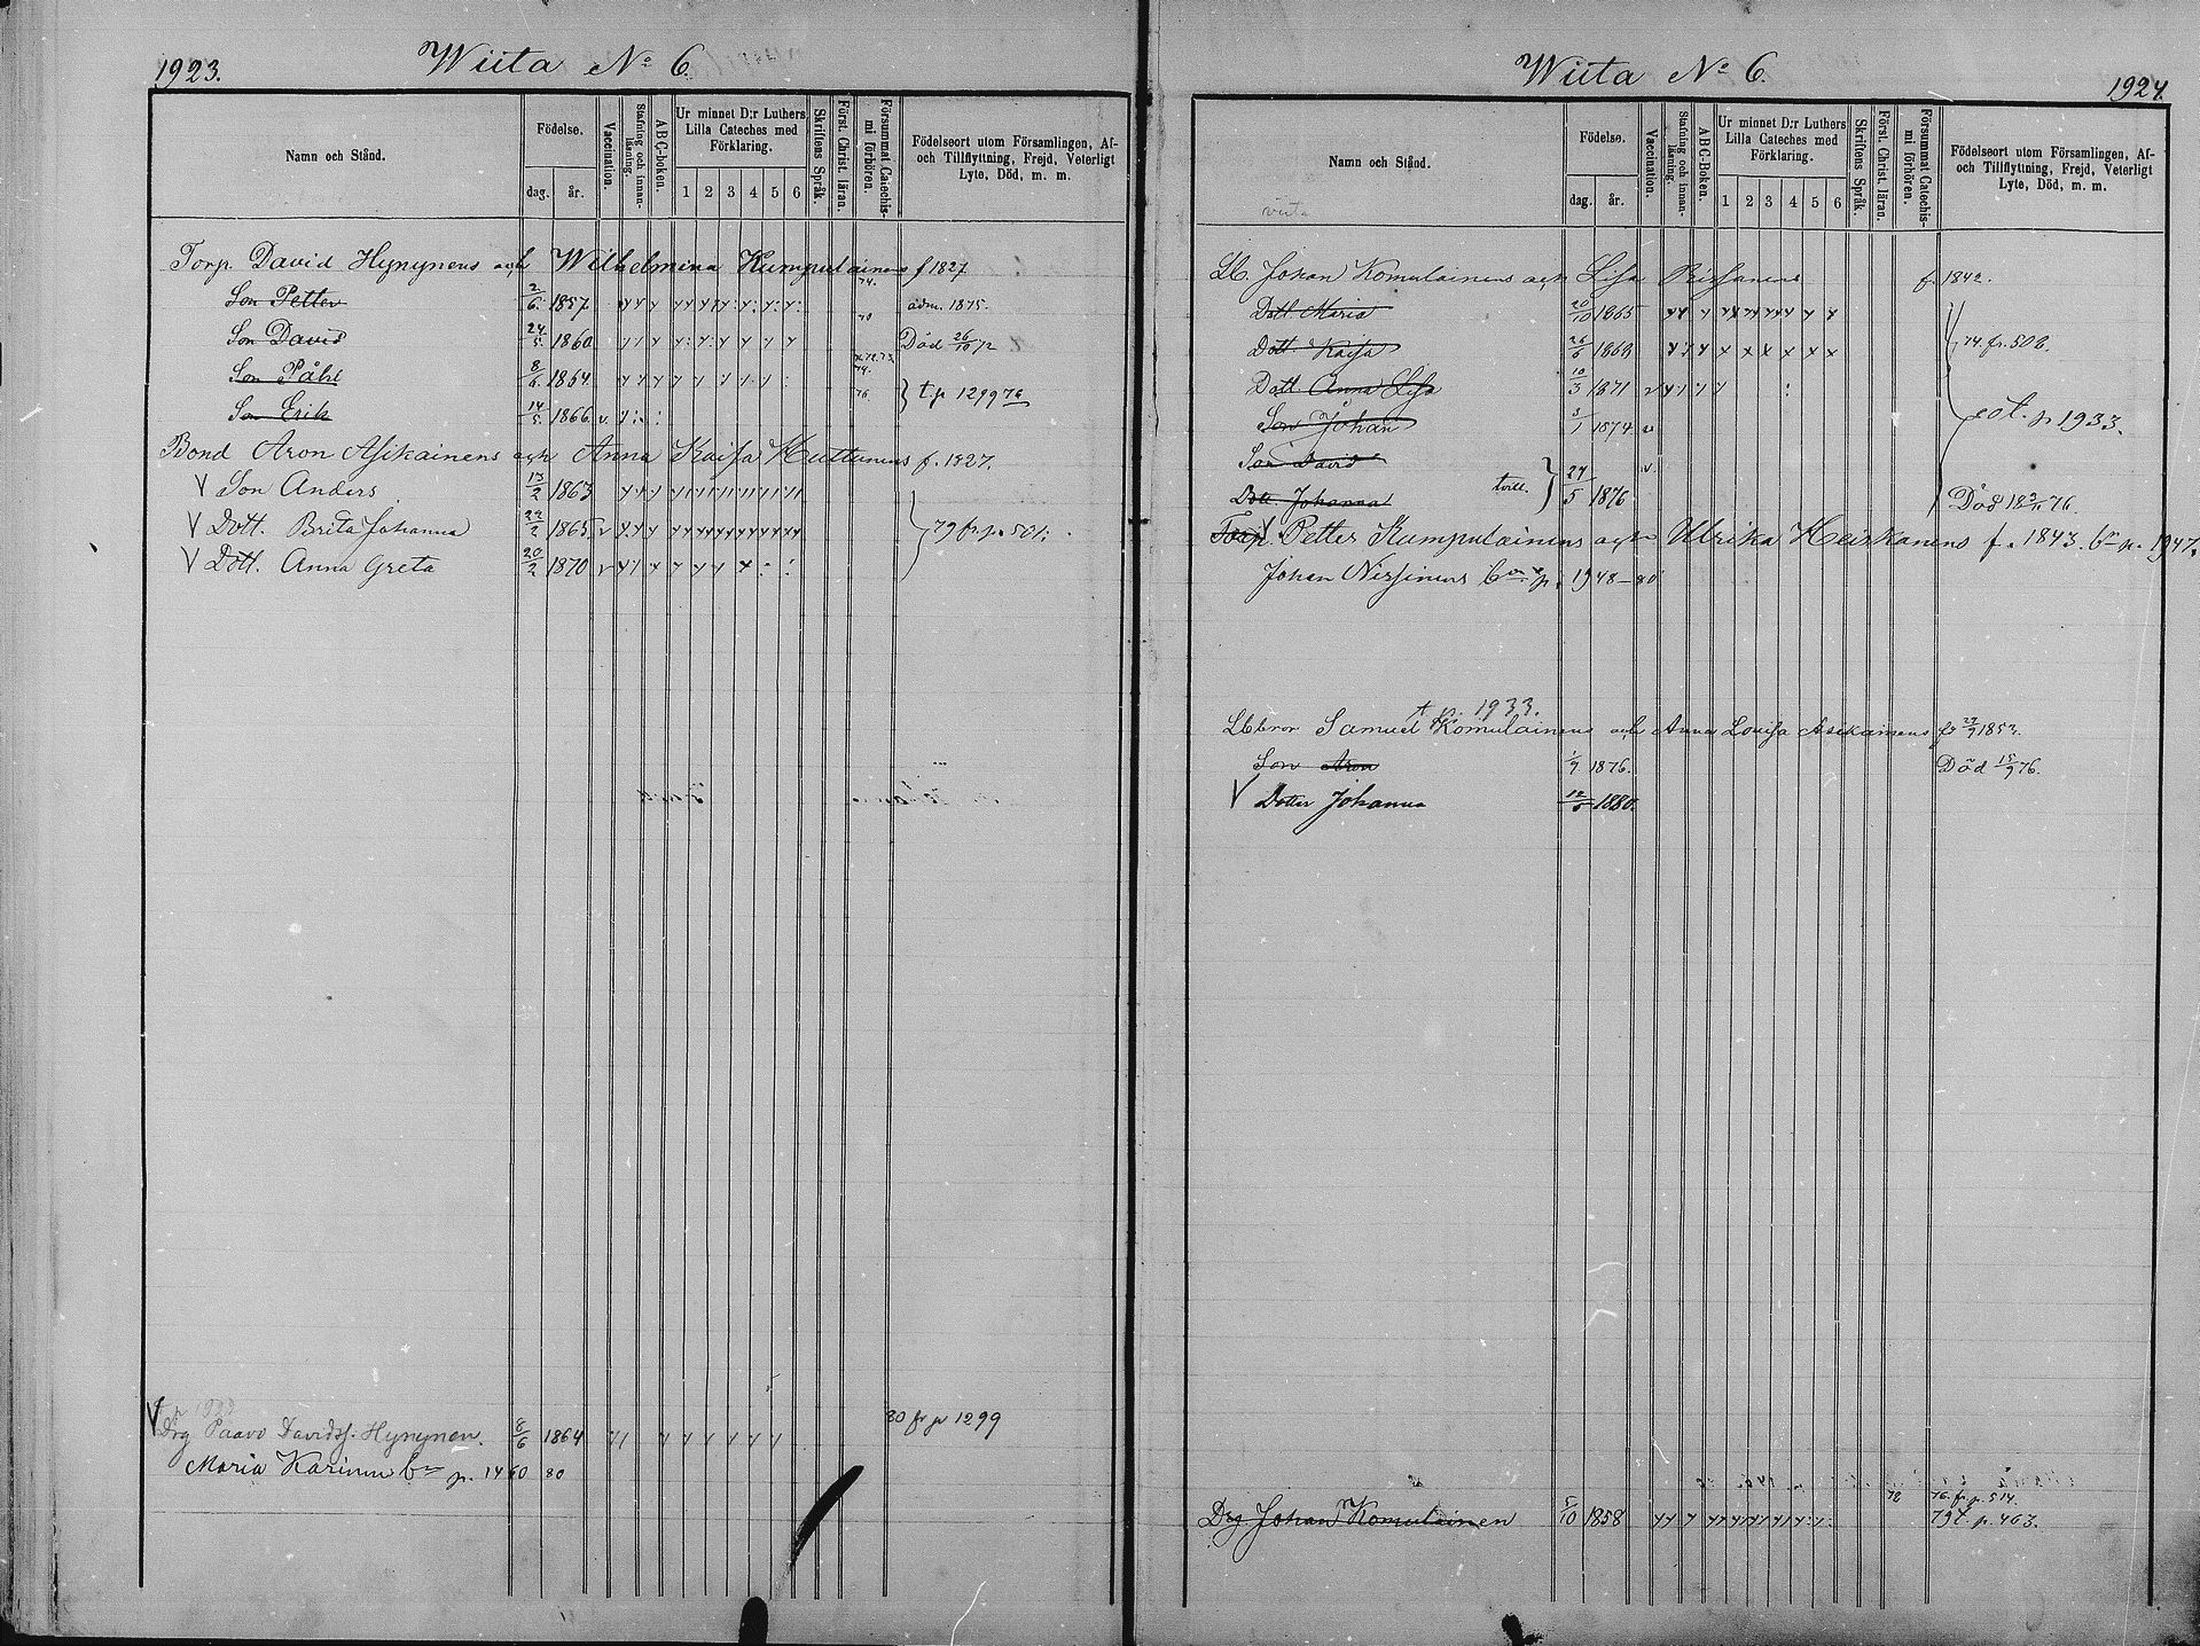 1923.
Wiita No 6.
Namn och Stånd.
Födelse.
dag. år.
Vaccination.
Stafning och innan-läsning.
ABC-boken.
Ur minnet D:r Luthers Lilla Cateches med Förklaring.
1 2 3 4 5 6
Skriftens Språk.
Först. Christ. läran.
Försummat Catechis-mi förhören.
Födelseort utom Församlingen, Af- och Tillflyttning, Frejd, Veterligt Lyte, Död, m. m.
Torp. David Hynynens och Wilhelmina Kumpulainens f 1827
Son Petter 2/6 1857 74. adm. 1875.
Son David 24/5 1860 Död 26/10 72
Son Påhl 8/6 1864
Son Erik 14/5 1866 v. 76. t.p 1299 76
Bond Aron Asikainens och Anna Kaisa Huttunens f. 1827.
V Son Anders 13/2 1863
V Dott. Brita Johanna 22/2 1865 v 79 fr. p. 501.
V Dott. Anna Greta 20/2 1870 v
V Drg Paavo Davidss. Hynynen. 8/6 1864 80 fr p 1299
Maria Karinen bn p. 1460 80
Wiita No 6.
1924.
Namn och Stånd.
Födelse.
dag. år.
Vaccination.
Stafning och innan-läsning.
ABC-Boken.
Ur minnet D:r Luthers Lilla Cateches med Förklaring.
1 2 3 4 5 6
Skriftens Språk.
Först. Christ. läran.
Försummat Catechis-mi förhören.
Födelseort utom Församlingen, Af- och Tillflyttning, Frejd, Veterligt Lyte, Död, m. m.
wiita
Lb. Johan Komulainens och Lisa f. 1842.
Dott. Maria 20/10 1865
Dott. Kaisa 26/6 1869 74. fr. 508.
Dott. Anna Lisa 10/3 1871 v
Son Johan 3/1 1874 v t. p 1933.
Son David v
tvill. 27/5 1876
Dott. Johanna Död 18 3/11 76.
Torp. Petter Kumpulainens och Ulrika Heiskanens f. 1843. bn p. 1947.
Johan Nissinens bn p. 1948 — 80
t p. 1933.
Lbbror Samuel Komulainens och Anna Lovisa Asikainens
Son Aron 1/9 1876. Död 15/9 76.
V Dotter Johanna 12/5 1880.
72 76. fr p. 514.
Drg Johan Komulainen 5/10 1858 79 t. p. 463.